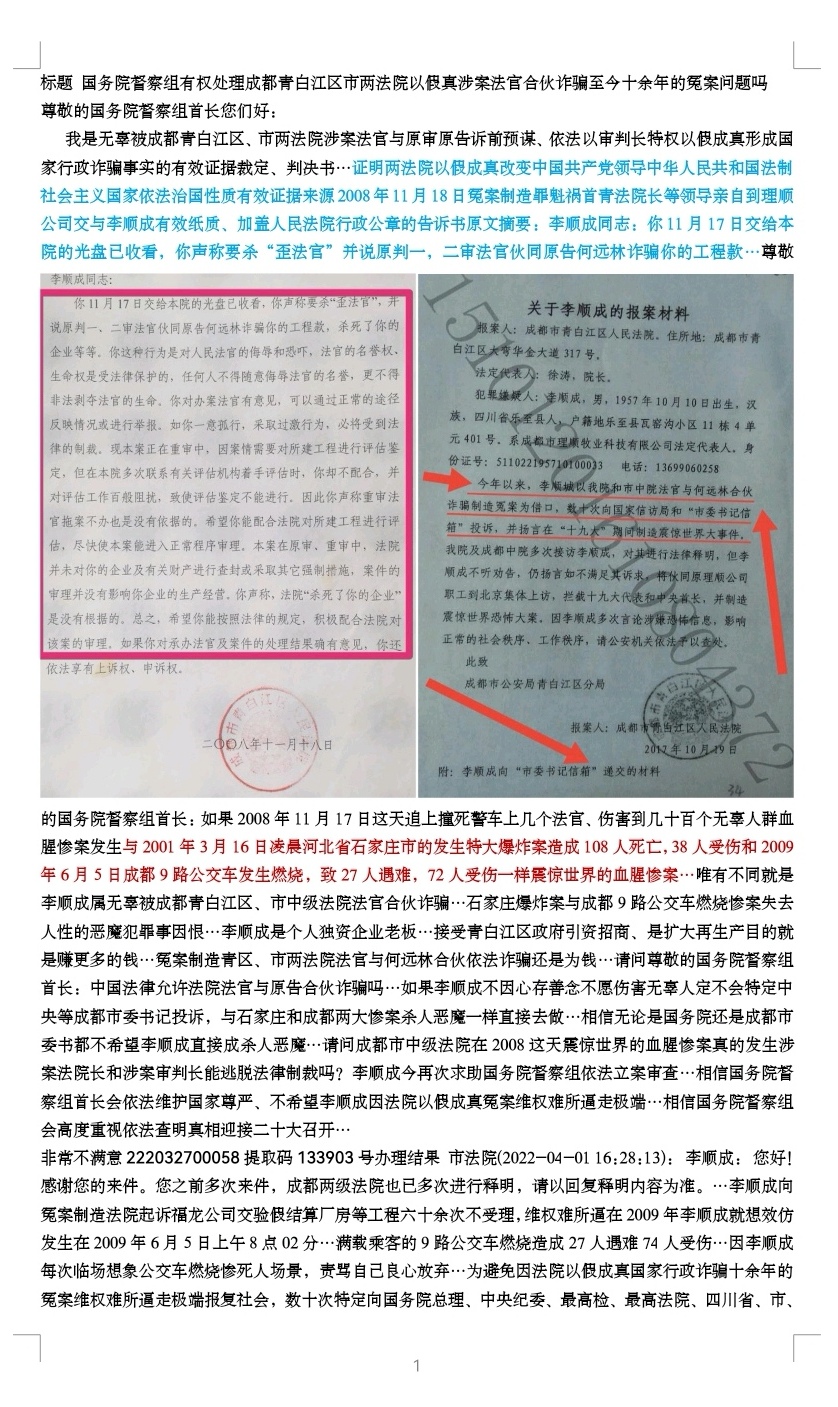 标题 国务院督察组有权处理成都青白江区市两法院以假真涉案法官合伙诈骗至今十余年的冤案问题吗
尊敬的国务院督察组首长您们好：
我是无辜被成都青白江区、市两法院涉案法官与原审原告诉前预谋、依法以审判长特权以假成真形成国
家行政诈骗事实的有效证据裁定、判决书…证明两法院以假成真改变中国共产党领导中华人民共和国法制
社会主义国家依法治国性质有效证据来源 2008 年 11 月 18 日冤案制造罪魁祸首青法院长等领导亲自到理顺
公司交与李顺成有效纸质、加盖人民法院行政公章的告诉书原文摘要：李顺成同志：你 11 月 17 日交给本
院的光盘已收看，你声称要杀“歪法官”并说原判一，二审法官伙同原告何远林诈骗你的工程款…尊敬
李顺成同志：
你 11 月 17 日交给本院的光盘已收看，你声称要杀“歪法官”，并
说原判一、二审法官伙同原告何远林诈骗你的工程款，杀死了你的
企业等等。你这种行为是对人民法官的侮辱和恐吓，法官的名誉权、
生命权是受法律保护的，任何人不得随意侮辱法官的名誉，更不得
非法剥夺法官的生命。你对办案法官有意见，可以通过正常的途径
反映情况或进行举报。如你一意孤行，采取过激行为，必将受到法
律的制裁。现本案正在重审中，因案情需要对所建工程进行评估鉴
定，但在本院多次联系有关评估机构着手评估时，你却不配合，并
对评估工作百般阻扰，致使评估鉴定不能进行。因此你声称重审法
官拖案不办也是没有依据的。希望你能配合法院对所建工程进行评
估，尽快使本案能进入正常程序审理。本案在原审、重审中，法院
并未对你的企业及有关财产进行查封或采取其它强制措施，案件的
审理并没有影响你企业的生产经营。你声称，法院“杀死了你的企业”
是没有根据的。总之，希望你能按照法律的规定，积极配合法院对
该案的审理。如果你对承办法官及案件的处理结果确有意见，你还
依法享有上诉权、申诉权。
二〇〇八年十一月十八日
关于李顺成的报案材料
报案人：成都市青白江区人民法院。住所地：成都市青
白江区大弯华金大道 317 号。
法定代表人：徐涛，院长。
犯罪嫌疑人：李顺成，男，1957 年 10 月 10 日出生，汉
族，四川省乐至县人，户籍地乐至县瓦窑沟小区 11 栋 4 单
元 401 号。系成都市理顺牧业科技有限公司法定代表人。身
份证号：511022195710100033 电话：13699060258
今年以来，李顺城以我院和市中院法官与何远林合伙
诈骗制造冤案为借口，数十次向国家信访局和“市委书记信
箱”投诉，并扬言在“十九大”期间制造震惊世界大事件，
我院及成都中院多次接访李顺成，对其进行法律释明，但李
顺成不听劝告、仍扬言如不满足其诉求，将伙同原理顺公司
职工到北京集体上访，拦截十九大代表和中央首长，并制造
震惊世界恐怖大案。因李顺成多次言论涉嫌恐怖信息，影响
正常的社会秩序、工作秩序，请公安机关依法予以查处。
此致
成都市公安局青白江区分局
报案人：成都市青白江区人民法院
2017 年 10 月 19 日
附：李顺成向“市委书记信箱”递交的材料
34
的国务院督察组首长：如果 2008 年 11 月 17 日这天追上撞死警车上几个法官、伤害到几十百个无辜人群血
腥惨案发生与 2001 年 3 月 16 日凌晨河北省石家庄市的发生特大爆炸案造成 108 人死亡，38 人受伤和 2009
年 6 月 5 日成都 9 路公交车发生燃烧，致 27 人遇难，72 人受伤一样震惊世界的血腥惨案…唯有不同就是
李顺成属无辜被成都青白江区、市中级法院法官合伙诈骗…石家庄爆炸案与成都 9 路公交车燃烧惨案失去
人性的恶魔犯罪事因恨…李顺成是个人独资企业老板…接受青白江区政府引资招商、是扩大再生产目的就
是赚更多的钱…冤案制造青区、市两法院法官与何远林合伙依法诈骗还是为钱…请问尊敬的国务院督察组
首长：中国法律允许法院法官与原告合伙诈骗吗…如果李顺成不因心存善念不愿伤害无辜人定不会特定中
央等成都市委书记投诉，与石家庄和成都两大惨案杀人恶魔一样直接去做…相信无论是国务院还是成都市
委书都不希望李顺成直接成杀人恶魔…请问成都市中级法院在 2008 这天震惊世界的血腥惨案真的发生涉
案法院长和涉案审判长能逃脱法律制裁吗？李顺成今再次求助国务院督察组依法立案审查…相信国务院督
察组首长会依法维护国家尊严、不希望李顺成因法院以假成真冤案维权难所逼走极端…相信国务院督察组
会高度重视依法查明真相迎接二十大召开…
非常不满意 222032700058 提取码 133903 号办理结果 市法院(2022-04-01 16:28:13)：李顺成：您好！
感谢您的来件。您之前多次来件，成都两级法院也已多次进行释明，请以回复释明内容为准。…李顺成向
冤案制造法院起诉福龙公司交验假结算厂房等工程六十余次不受理，维权难所逼在 2009 年李顺成就想效仿
发生在 2009 年 6 月 5 日上午 8 点 02 分…满载乘客的 9 路公交车燃烧造成 27 人遇难 74 人受伤…因李顺成
每次临场想象公交车燃烧惨死人场景，责骂自己良心放弃…为避免因法院以假成真国家行政诈骗十余年的
冤案维权难所逼走极端报复社会，数十次特定向国务院总理、中央纪委、最高检、最高法院、四川省、市、
1